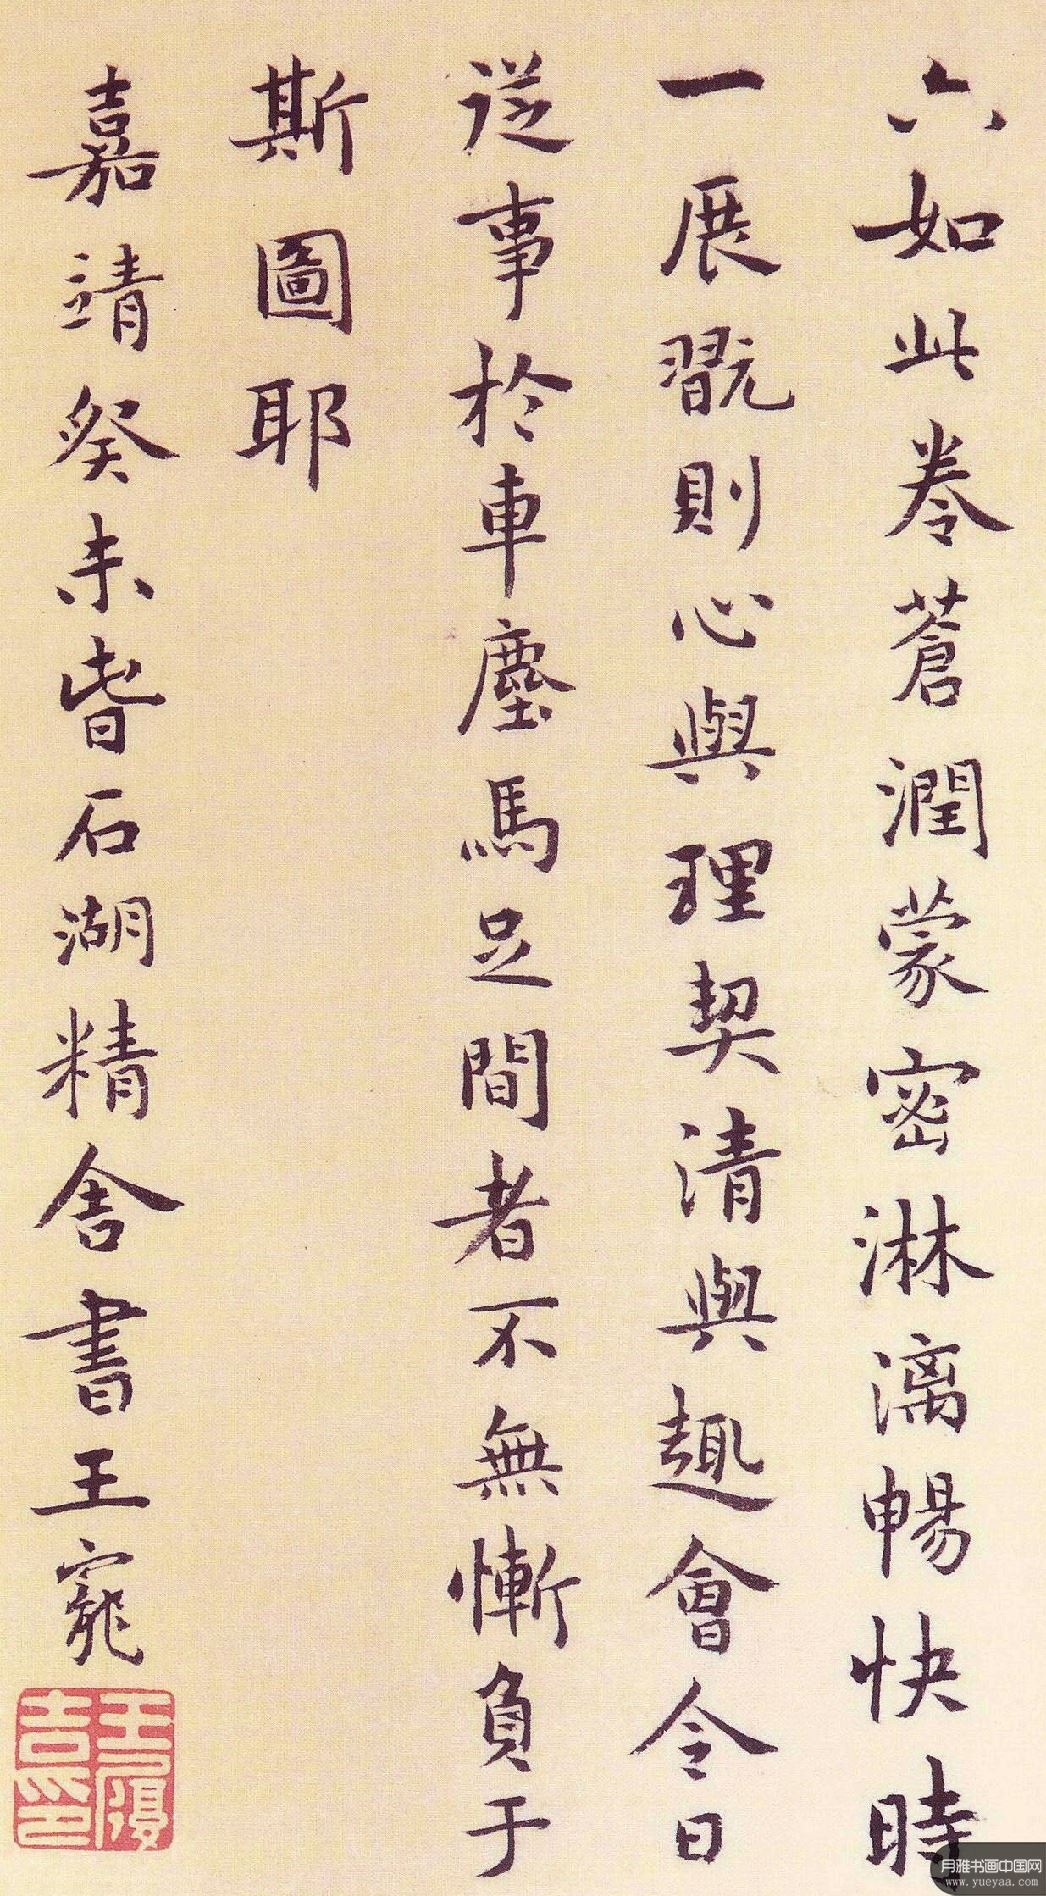 六如此卷蒼潤蒙密淋漓暢快時
一展翫則心與理契清與趣會令日
從事於車塵馬足間者不無慚負于
斯圖耶
嘉靖癸未昔石湖精舍書王寵
王履吉印
月雅书画中国网
www.yueyaa.com